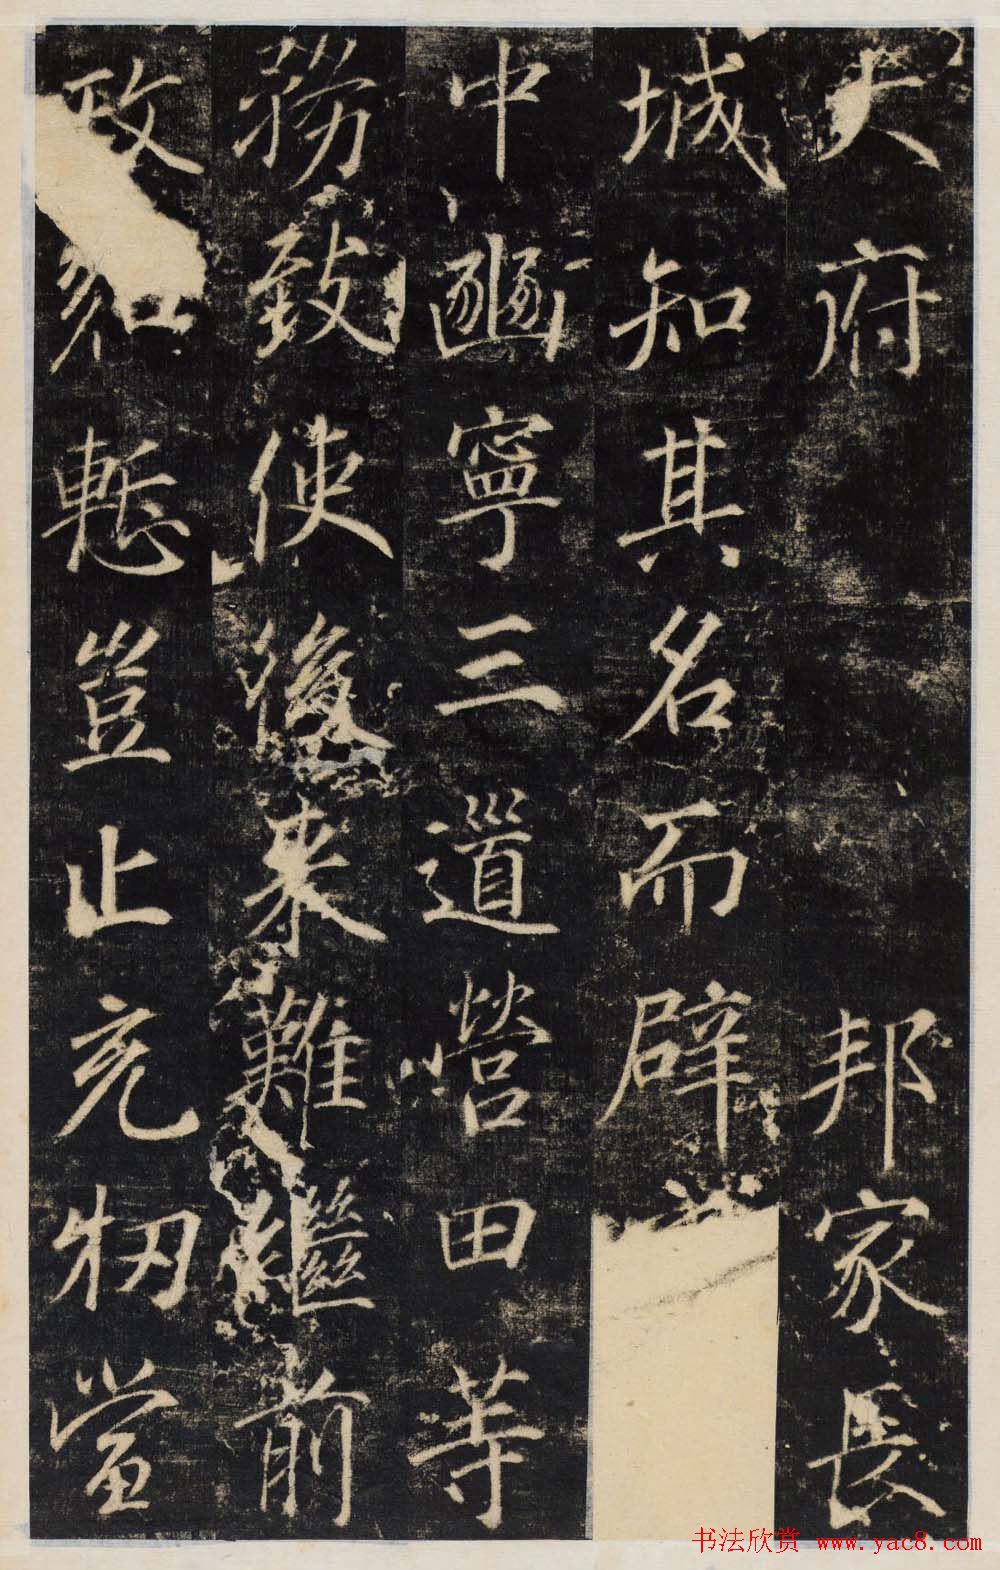 大府邦家長
城知其名而辟
中豳寧三道營田等
務致使後来難繼前
政知慙豈止充牣當
书法欣赏 www.yac8.com